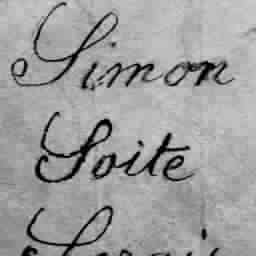 Simon
Soite